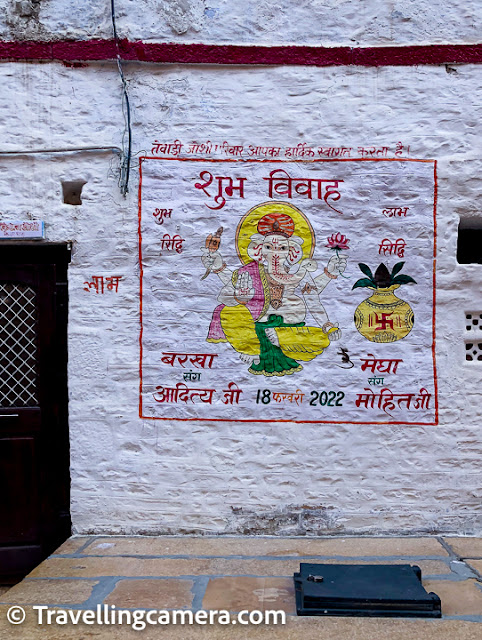 तेवाड़ी जोशी परिवार आपका हार्दिक स्वागत करता है।
शुभ विवाह
शुभ लाभ
रिद्धि सिद्धि
लाभ
बरखा मेघा
संग संग
आदित्य जी 18 फरवरी 2022 मोहित जी
© Travellingcamera.com